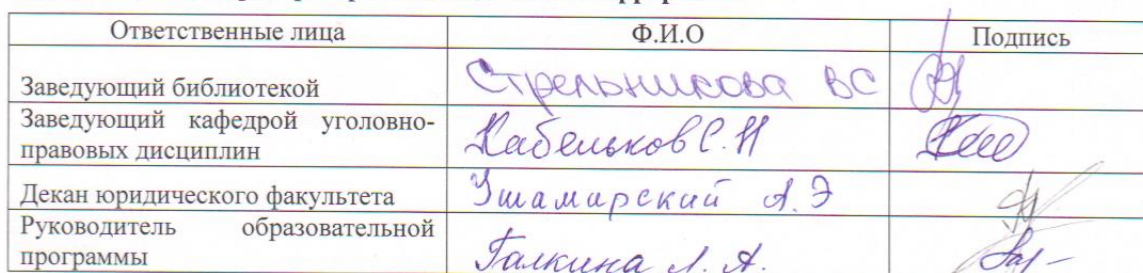 Ответственные лица Ф.И.О Подпись
Заведующий библиотекой Стрельникова ВС
Заведующий кафедрой уголовно-
правовых дисциплин Кабельков С.Н
Декан юридического факультета А.Э
Руководитель образовательной
программы Галкина Л.А.